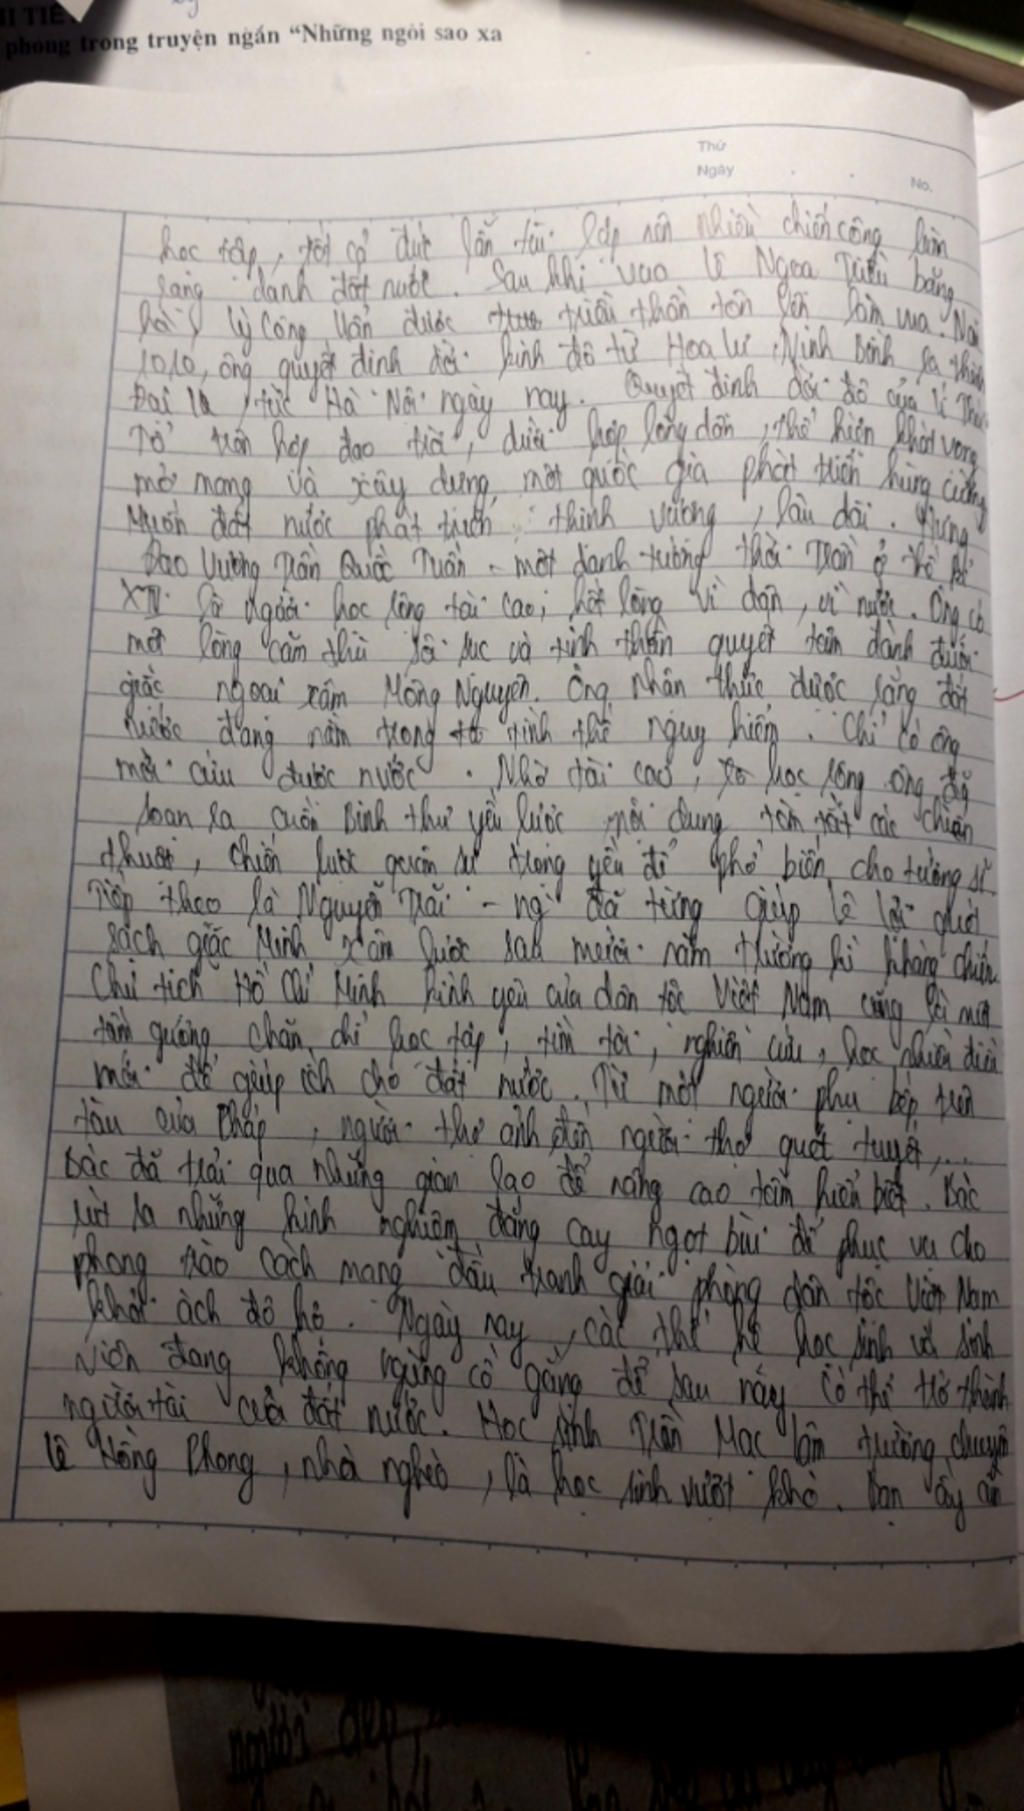 phong trong truyện ngắn “Những ngôi sao xa
Thứ
Ngày
No.
học tập, tốt cả đức lẫn tài lập nên nhiều chiến công làm
rạng danh đất nước. Sau khi vua Lê Ngọa Triều băng
hà, Lý Công Uẩn được triều thần tôn lên làm vua. Năm
1010, ông quyết định dời kinh đô từ Hoa Lư, Ninh Bình ra thành
Đại La, tức Hà Nội ngày nay. Quyết định dời đô của Lí Thái
Tổ trên hợp đạo trời, dưới hợp lòng dân, thể hiện khát vọng
mở mang và xây dựng một quốc gia phát triển hùng cường
Muốn đất nước phát triển thịnh vượng, lâu dài. Hưng
Đạo Vương Trần Quốc Tuấn - một danh tướng thời Trần ở thế kỉ
là người học rộng tài cao, hết lòng vì dân, vì nước. Ông có
một lòng căm thù sôi sục và tinh thần quyết tâm đánh đuổi
giặc ngoại xâm Mông Nguyên. Ông nhận thức được rằng đất
nước đang nằm trong tình thế nguy hiểm. Chỉ có ông
mới cứu được nước. Nhờ tài cao, học rộng ông đã
soạn ra cuốn Binh thư yếu lược nội dung tóm tắt các chiến
thuật, chiến lược quân sự trọng yếu để phổ biến cho tướng sĩ.
Tiếp theo là Nguyễn Trãi - ng đã từng giúp Lê Lợi quét
sạch giặc Minh xâm lược sau mười năm trường kì kháng chiến
Chủ tịch Hồ Chí Minh kính yêu của dân tộc Việt Nam cũng là một
tấm gương chăm chỉ học tập, tìm tòi, nghiên cứu, học nhiều điều
mới để giúp ích cho đất nước. Từ một người phụ bếp trên
tàu của Pháp, người thợ ảnh đến người thợ quét tuyết,...
Bác đã trải qua những gian lao để nâng cao tầm hiểu biết. Bác
rút ra những kinh nghiệm đắng cay ngọt bùi để phục vụ cho
phong trào cách mạng đấu tranh giải phóng dân tộc Việt Nam
khỏi ách đô hộ. Ngày nay, các thế hệ học sinh và sinh
viên đang không ngừng cố gắng để sau này có thể trở thành
người tài của đất nước. Học sinh Trần Mạc Lâm trường chuyên
Lê Hồng Phong, nhà nghèo, là học sinh vượt khó. Bạn ấy ăn